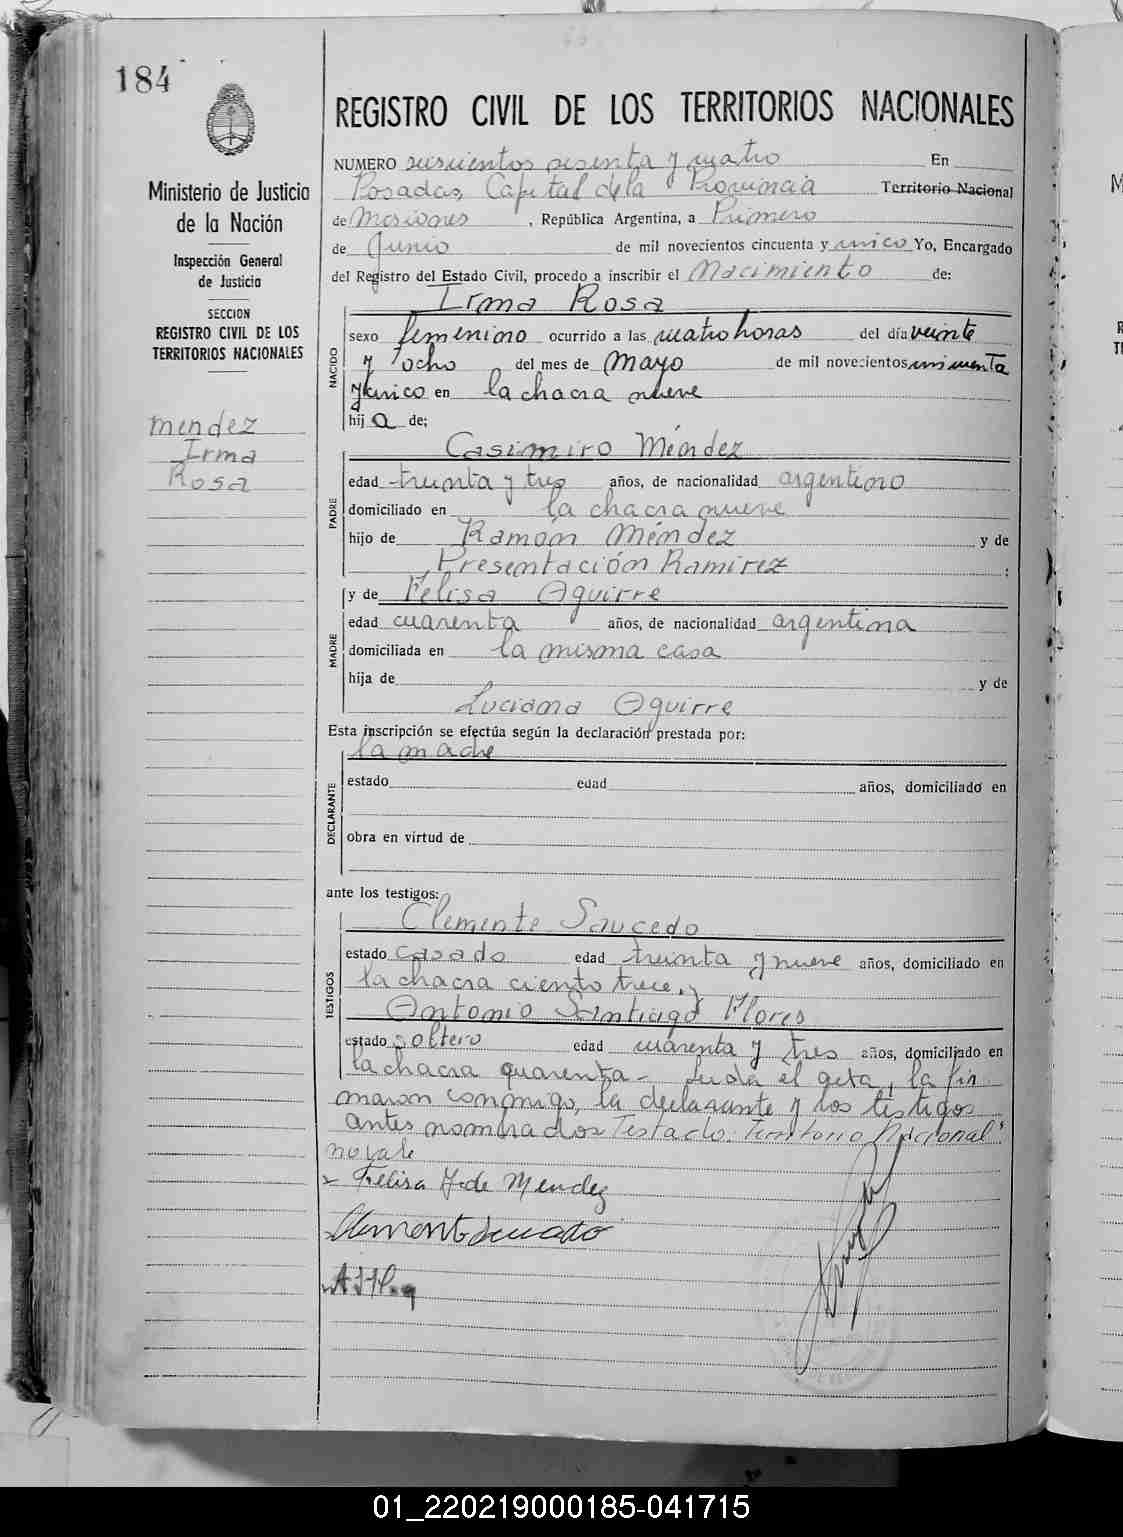 184
Ministerio de Justicia
de la Nación
Inspección General
de Justicia
SECCION
REGISTRO CIVIL DE LOS
TERRITORIOS NACIONALES
Mendez
Irma
Rosa
REGISTRO CIVIL DE LOS TERRITORIOS NACIONALES
NUMERO sesenta y cuatro En
Posadas, Capital de la Provincia Territorio Nacional
de Misiones, República Argentina, a Primero
de Junio de mil novecientos cincuenta y unico Yo, Encargado
del Registro del Estado Civil, procedo a inscribir el Nacimiento de:
Irma Rosa
NACIDO
sexo femenino ocurrido a las cuatro horas del día veinte
y ocho del mes de Mayo de mil novecientos
en la chacra nueve
hij a de;
Casimiro Méndez
PADRE
edad treinta y tres años, de nacionalidad argentino
domiciliado en la chacra nueve
hijo de Ramón Méndez y de
Presentación Ramirez ;
y de Felisa Aguirre
MADRE
edad cuarenta años, de nacionalidad argentina
domiciliada en la misma casa
hija de y de
Luciana Aguirre
Esta inscripción se efectúa según la declaración prestada por:
la madre
DECLARANTE
estado edad años, domiciliado en
obra en virtud de
ante los testigos:
Clemente Saucedo
TESTIGOS
estado casado edad treinta y nueve años, domiciliado en
la chacra ciento trece, y
Antonio Santiago Flores
estado soltero edad cuarenta y tres años, domiciliado en
la chacra quarenta - Leida el acta, la fir
maron conmigo, la declarante y los testigos
antes nominados Testado: Territorio Nacional"
no vale
Felisa A. de Mendez
01_220219000185-041715